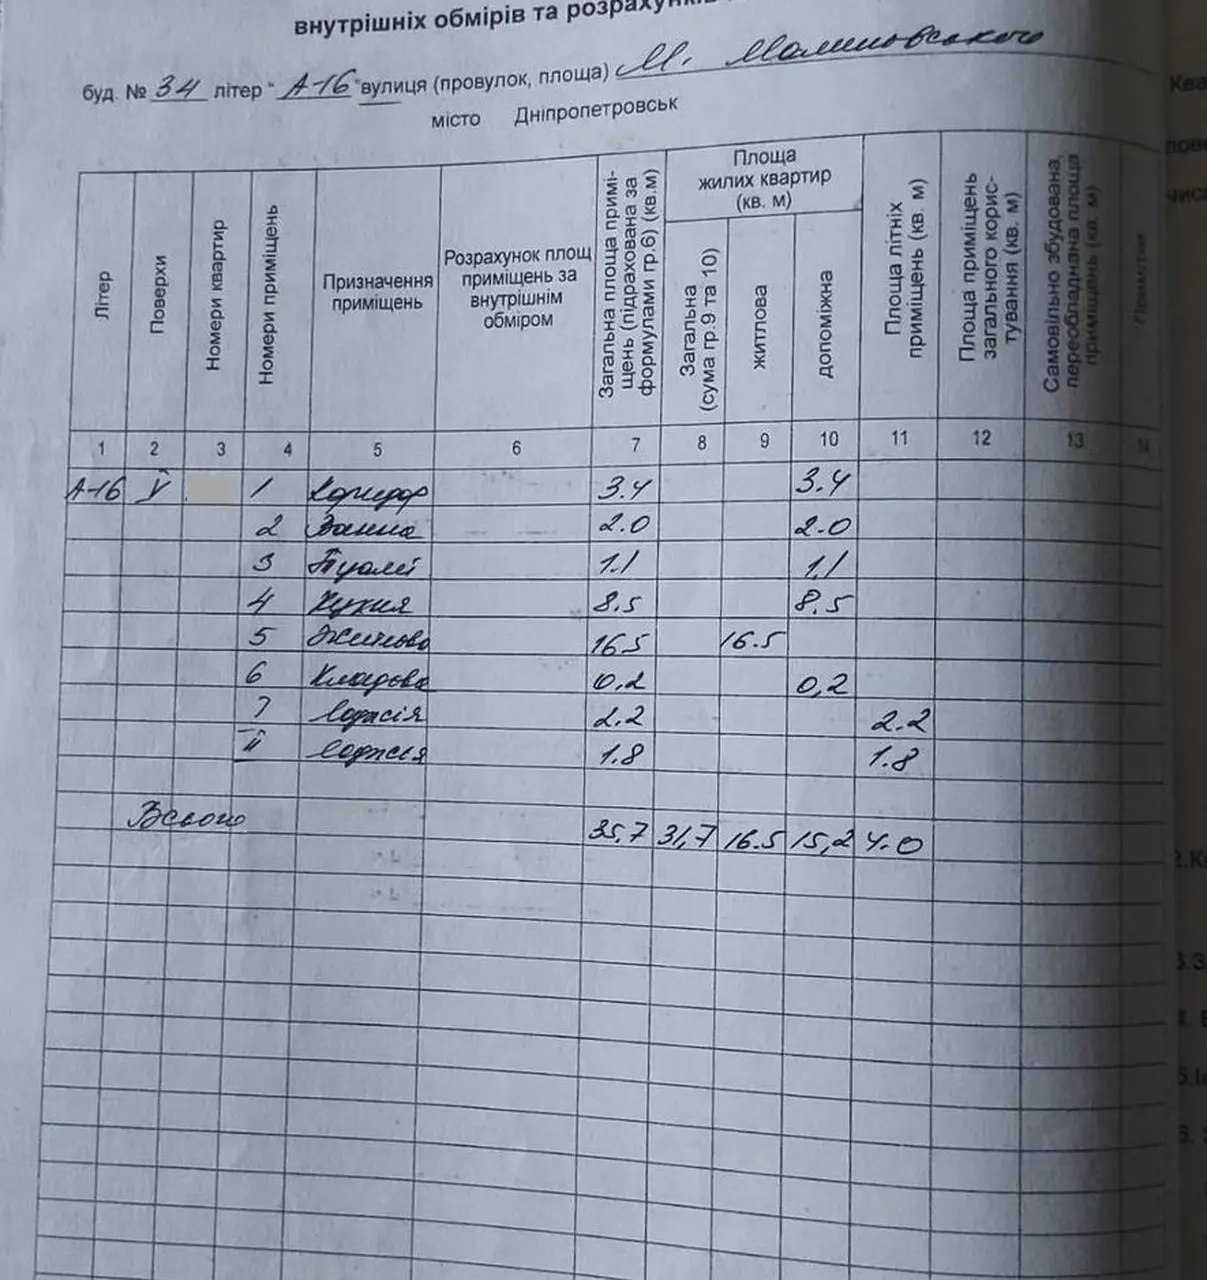 внутрішніх обмірів та розрахунків
буд. № 34 літер " А-16 " вулиця (провулок, площа) М. Малиновського
місто Дніпропетровськ
Літер
Поверхи
Номери квартир
Номери приміщень
Призначення приміщень
Розрахунок площ приміщень за внутрішнім обміром
Загальна площа примі-
щень (підрахована за
формулами гр.6) (кв.м)
Площа
жилих квартир
(кв. м)
Загальна
(сума гр.9 та 10)
житлова
допоміжна
Площа літніх
приміщень (кв. м)
Площа приміщень
загального корис-
тування (кв. м)
Самовільно збудована,
переобладнана площа
приміщень (кв. м)
Примітки
1 2 3 4 5 6 7 8 9 10 11 12 13
А-16 V 1 Коридор 3.4 3.4
2 Ванна 2.0 2.0
3 Туалет 1.1 1.1
4 Кухня 8.5 8.5
5 Житлова 16.5 16.5
6 Кладова 0,2 0,2
7 лоджія 2.2 2.2
ІІ лоджія 1.8 1.8
Всього 35,7 31,7 16.5 15,2 4.0
Ква
пов
чис
2.К
3.З
5.І